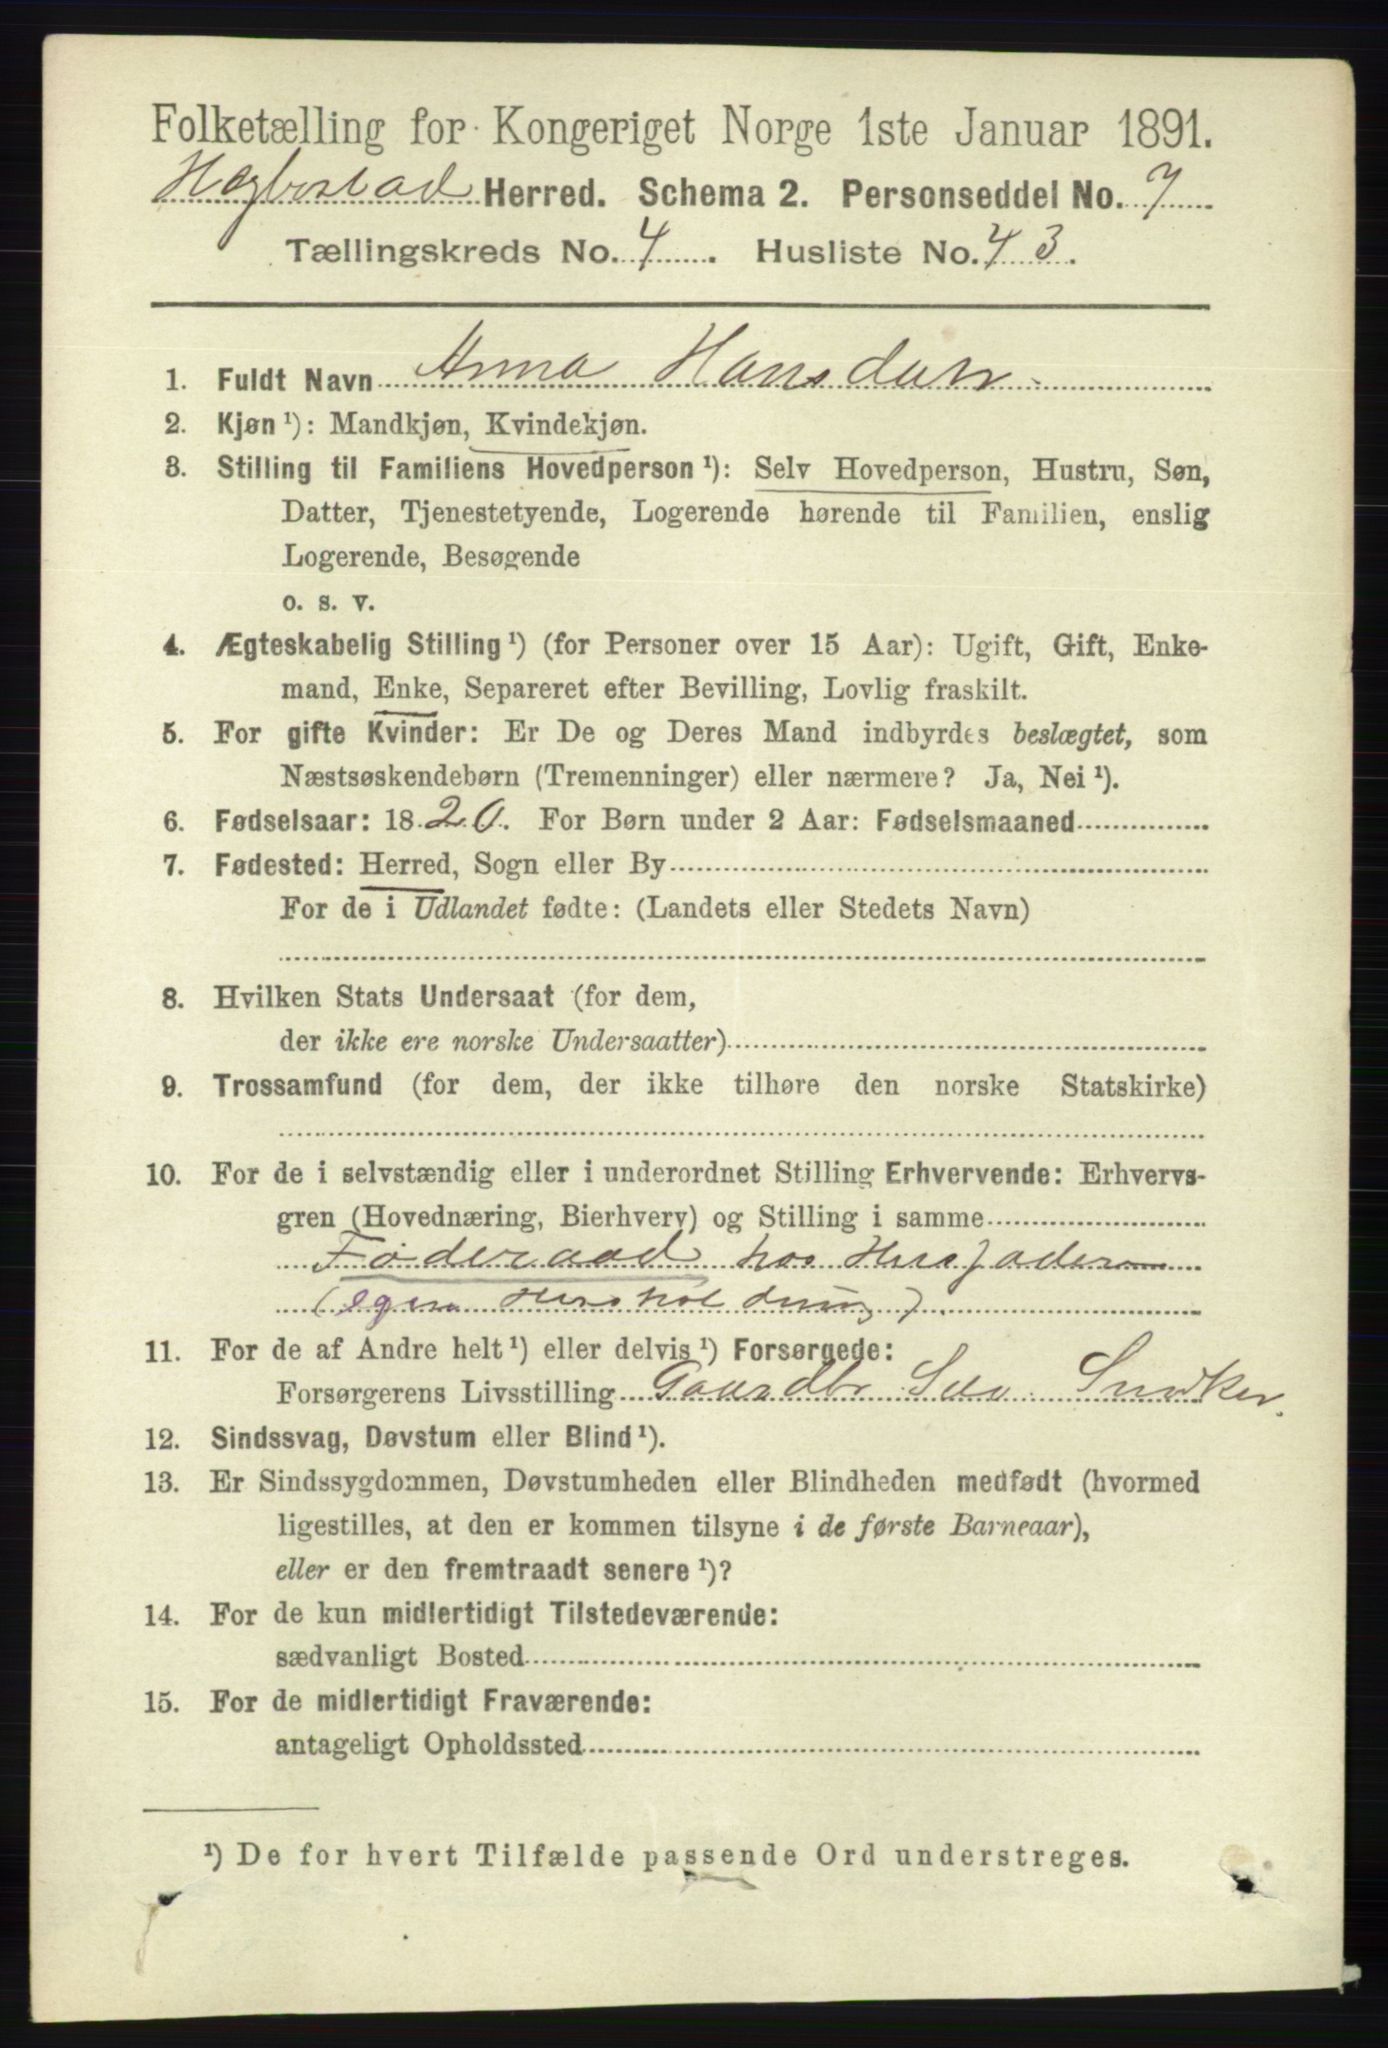 Folketælling for Kongeriget Norge 1ste Januar 1891.
Hægbostad Herred. Schema 2. Personseddel No. 7
Tællingskreds No. 4. Husliste No. 43.
1. Fuldt Navn Anna Hansdatr
2. Kjøn ¹): Mandkjøn, Kvindekjøn.
3. Stilling til Familiens Hovedperson ¹): Selv Hovedperson, Hustru, Søn,
Datter, Tjenestetyende, Logerende hørende til Familien, enslig
Logerende, Besøgende
o. s. v.
4. Ægteskabelig Stilling ¹) (for Personer over 15 Aar): Ugift, Gift, Enke-
mand, Enke, Separeret efter Bevilling, Lovlig fraskilt.
5. For gifte Kvinder: Er De og Deres Mand indbyrdes beslægtet, som
Næstsøskendebørn (Tremenninger) eller nærmere? Ja, Nei ¹).
6. Fødselsaar: 1820. For Børn under 2 Aar: Fødselsmaaned
7. Fødested: Herred, Sogn eller By
For de i Udlandet fødte: (Landets eller Stedets Navn)
8. Hvilken Stats Undersaat (for dem,
der ikke ere norske Undersaatter)
9. Trossamfund (for dem, der ikke tilhøre den norske Statskirke)
10. For de i selvstændig eller i underordnet Stilling Erhvervende: Erhvervs-
gren (Hovednæring, Bierhverv) og Stilling i samme
Føderaad hos Husfader
(egen Husholdning).
11. For de af Andre helt ¹) eller delvis ¹) Forsørgede:
Forsørgerens Livsstilling Gaardbr Snedker.
12. Sindssvag, Døvstum eller Blind ¹).
13. Er Sindssygdommen, Døvstumheden eller Blindheden medfødt (hvormed
ligestilles, at den er kommen tilsyne i de første Barneaar),
eller er den fremtraadt senere ¹)?
14. For de kun midlertidigt Tilstedeværende:
sædvanligt Bosted
15. For de midlertidigt Fraværende:
antageligt Opholdssted
¹) De for hvert Tilfælde passende Ord understreges.